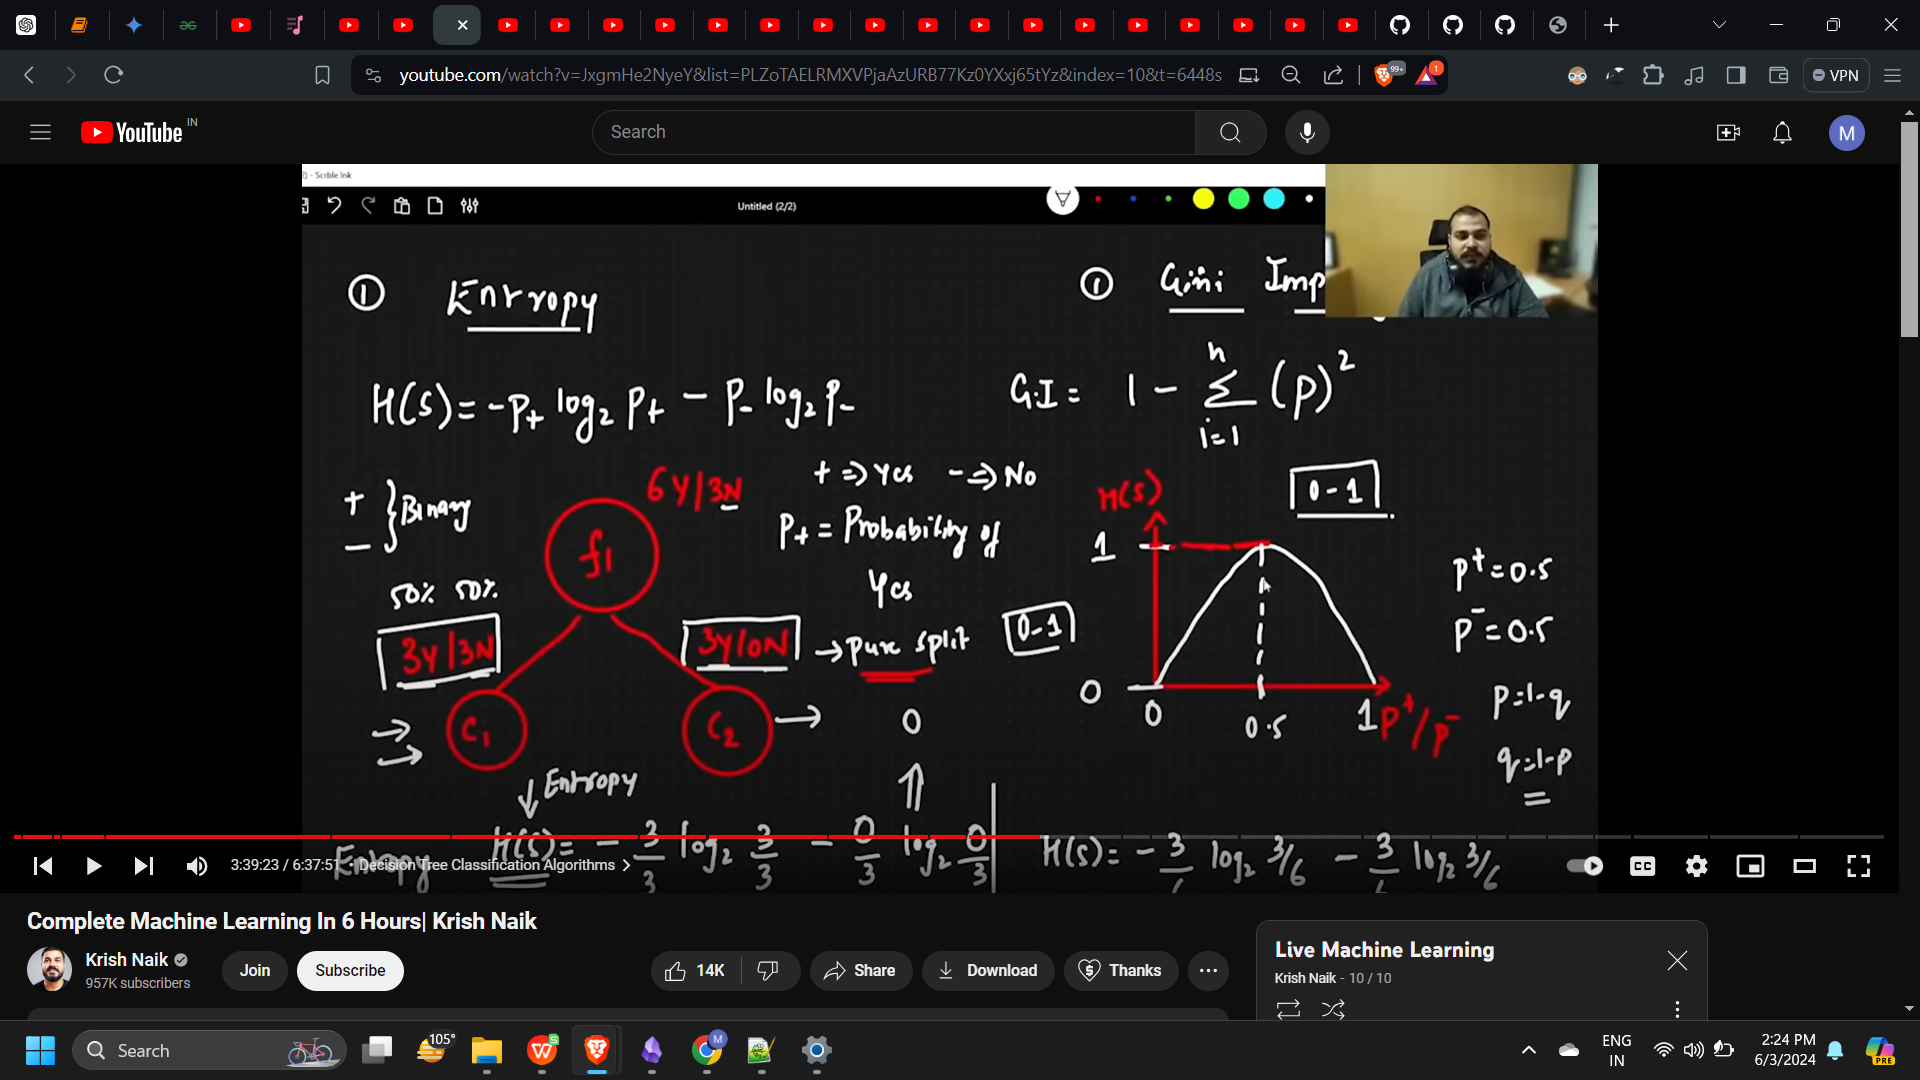 youtube.com/watch?v=JxgmHe2NyeY&list=PLZoTAELRMXVPjaAzURB77Kz0YXxj65tYz&index=10&t=6448s
99+
1
VPN
YouTube IN
Search
M
- Scrble Ink
Untitled (2/2)
① Entropy
① Gini Imp
H(S) = -P+ log2 P+ - P- log2 P-
G.I = 1 - Σ (p)²
n
i=1
+ => Yes - => No
6Y/3N
+ } Binary
-
P+ = Probability of
Yes
f1
50% 50%
3Y/3N
3Y/0N → Pure split
0-1
C1
C2 → 0
↓ Entropy
H(S)
0-1
1
0
0 0.5 1 P+/P-
P+ = 0.5
P- = 0.5
P=1-q
q=1-p
Entropy H(S) = - 3/3 log2 3/3 - 0/3 log2 0/3
H(S) = - 3/6 log2 3/6 - 3/6 log2 3/6
3:39:23 / 6:37:51 • Decision Tree Classification Algorithms >
CC
Complete Machine Learning In 6 Hours| Krish Naik
Krish Naik
957K subscribers
Join
Subscribe
14K
Share
Download
Thanks
Live Machine Learning
Krish Naik - 10 / 10
Search
105°
M
ENG
IN
2:24 PM
6/3/2024
PRE